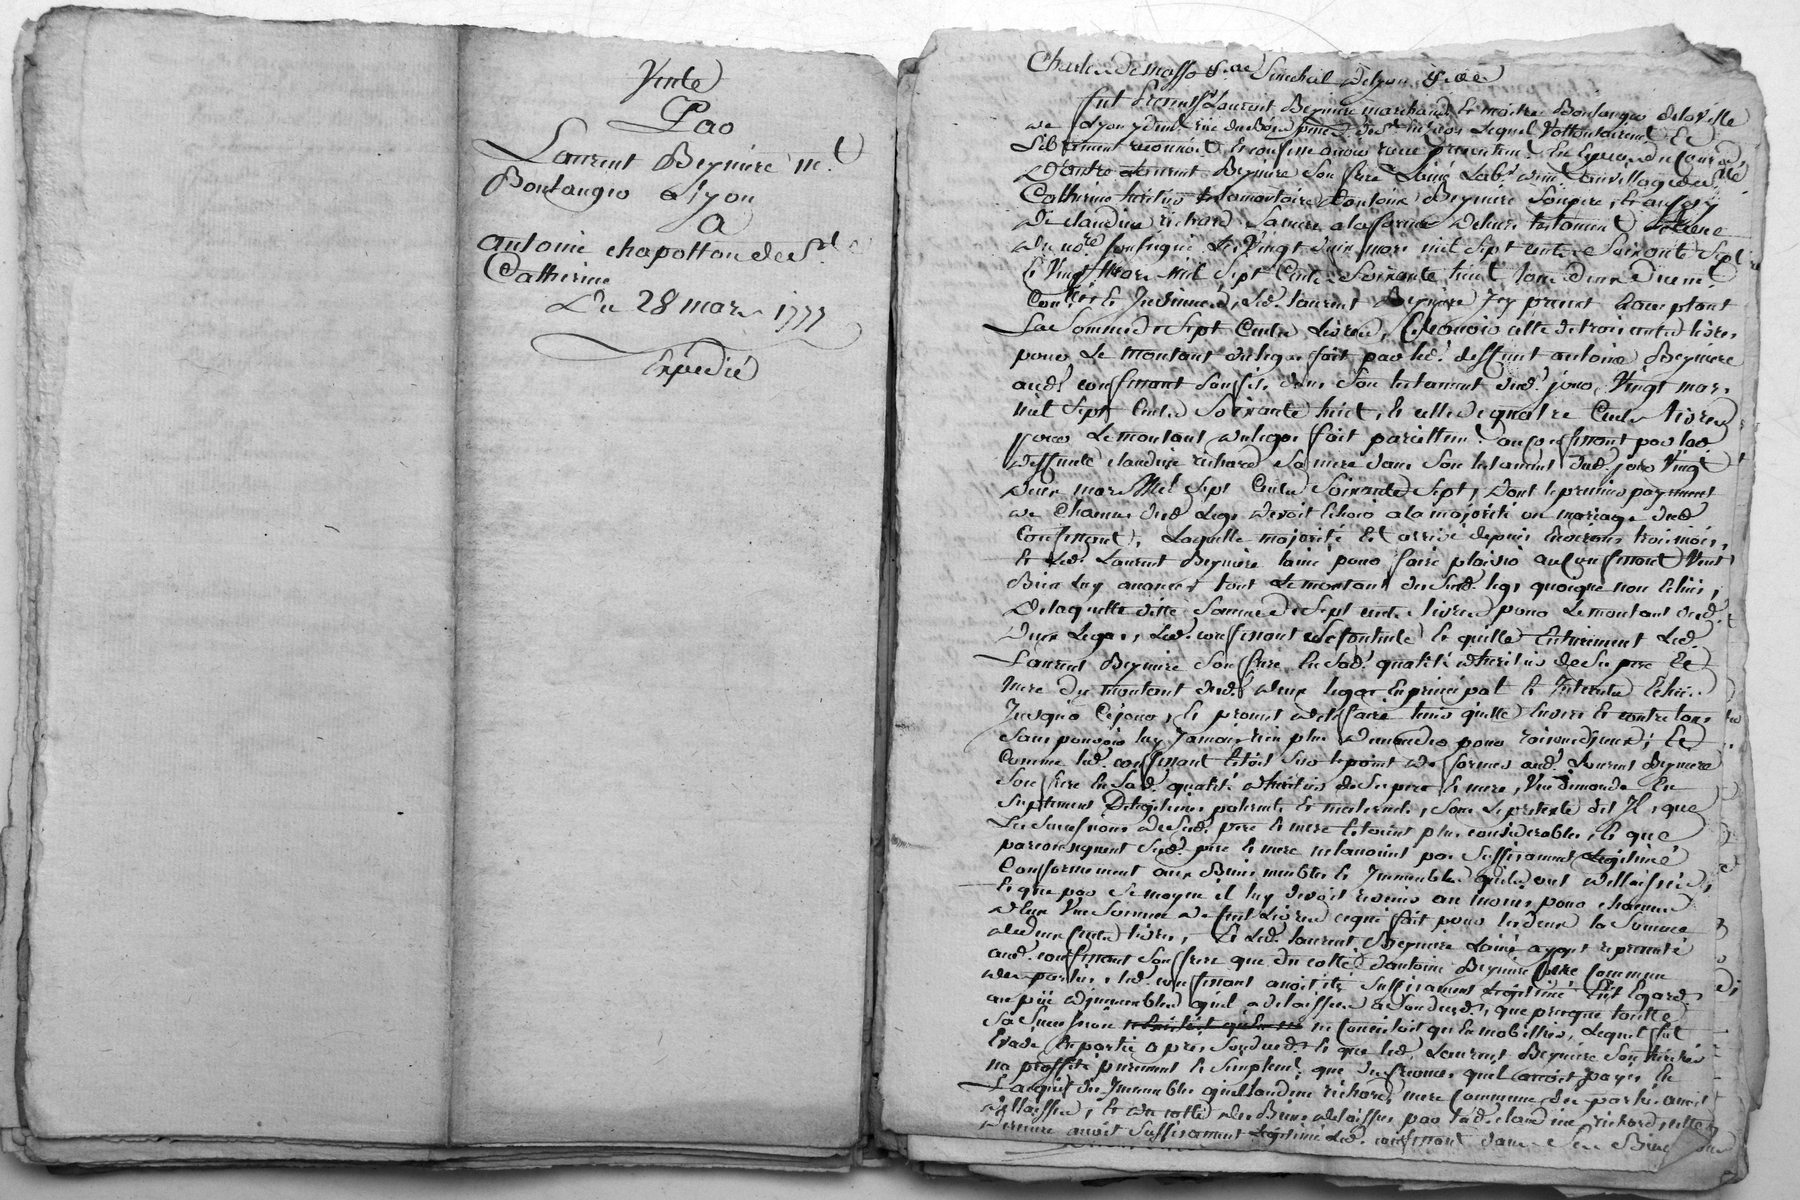 Vente
Par
Laurent Beyniere m.d
Boulanger a Lyon
A
antoine chapotton de S.te
Catherine
Du 28 mars 1777
Expedié
Charles Demasso &.ca Senechal de Lyon &.ca
fut present S.r Laurent Beyniere marchand et maitre Boulanger de la ville
de Lyon y dem.t rue lequel vollontairem.t et
Librement reconnoit et confesse avoir recu presentem.t en especes du cours
d'autre Laurent Beyniere son frere Lainé Lab.r dem.t au village de S.te
Catherine heritier testamentaire d'antoine Beyniere son pere, et aussy
de claudine richard sa mere a la forme de leurs testaments
du no.re soussigné les vingt deux mars mil sept cents soixante sept
et vingt mars mil sept cents soixante huit, tous deux duem.t
Con.llés et Insinués, led. laurent Beyniere Icy present acceptant
La somme de sept cents Livres, Scavoir celle de trois cents livres
pour Le montant du legs fait par led. deffunt antoine Beyniere
aud. confessant son fils dans son testament dud. jour, vingt mars
mil sept cents soixante huit, et celle de quatre cents livres
pour Le montant du legs fait pareillem.t au confessant par lad.
deffunte claudine richard sa mere dans son testament dud. jour vingt
deux mars Mil sept cents soixante sept, dont le premier payement
de chacun desd. legs devoit Echoir a la majorité ou mariage dud.
confessant, Laquelle majorité Est arrivée depuis Environ trois mois,
et led. Laurent Beyniere lainé pour faire plaisir au confessant veut
Bien luy avancer tout Le montant desd. legs quoique non Echus,
De laquelle ditte somme de sept cents livres pour Le montant desd.
deux Legs, Led. confessant se contente et quitte Entierement Led.
Laurent Beyniere son frere En sad. qualité d'heritier de ses pere et
mere du montant desd. deux legs En principal et Interets Echus
Jusqu'a Cejour, et promet de l'En faire tenir quitte Envers et contre tous
sans pouvoir luy Jamais rien plus demander pour raison d'iceux; Et
Comme led. confessant Etoit sur le point de former aud. Laurent Beyniere
son frere En sad. qualité d'heritier de ses pere et mere, Une demande En
suplement De legitimes paternels Et maternels, sous Le pretexte dit Il, que
Les successions de sesd. pere et mere Etoient plus considerables, et que
par consequent sesd. pere et mere ne lavoient pas suffisament Legitimé
Conformement aux Biens meubles et Immeubles qu'ils ont dellaissés,
et que par ce moyen il luy devoit revenir au moins pour chacun
d'Eux Une somme de cent Livres ce qui fait pour les deux la somme
de deux cents livres, Et Led. laurent Beyniere Lainé ayant representé
aud. confessant son frere que du cotté d'antoine Beyniere pere commun
des parties, led. confessant avoit été suffisament Legitimé Eut Egard
au peu d'immeubles quil a delaissés a son deceds, que presque toutte
sa succession ne Consistoit qu'En mobilliers, Lequel fut
Evadé En partie apres son deced. et que led. Laurent Beyniere son heritier
na proffité purement et simplem.t que des sommes quil avoit payés En
L'acquit des Immeubles que claudine richard, mere commune des parties avoit
dellaissés, et du cotté des Biens delaissés par lad. claudine richard, cette
derniere avoit suffisament Legitimé Led. confessant dans ses Biens